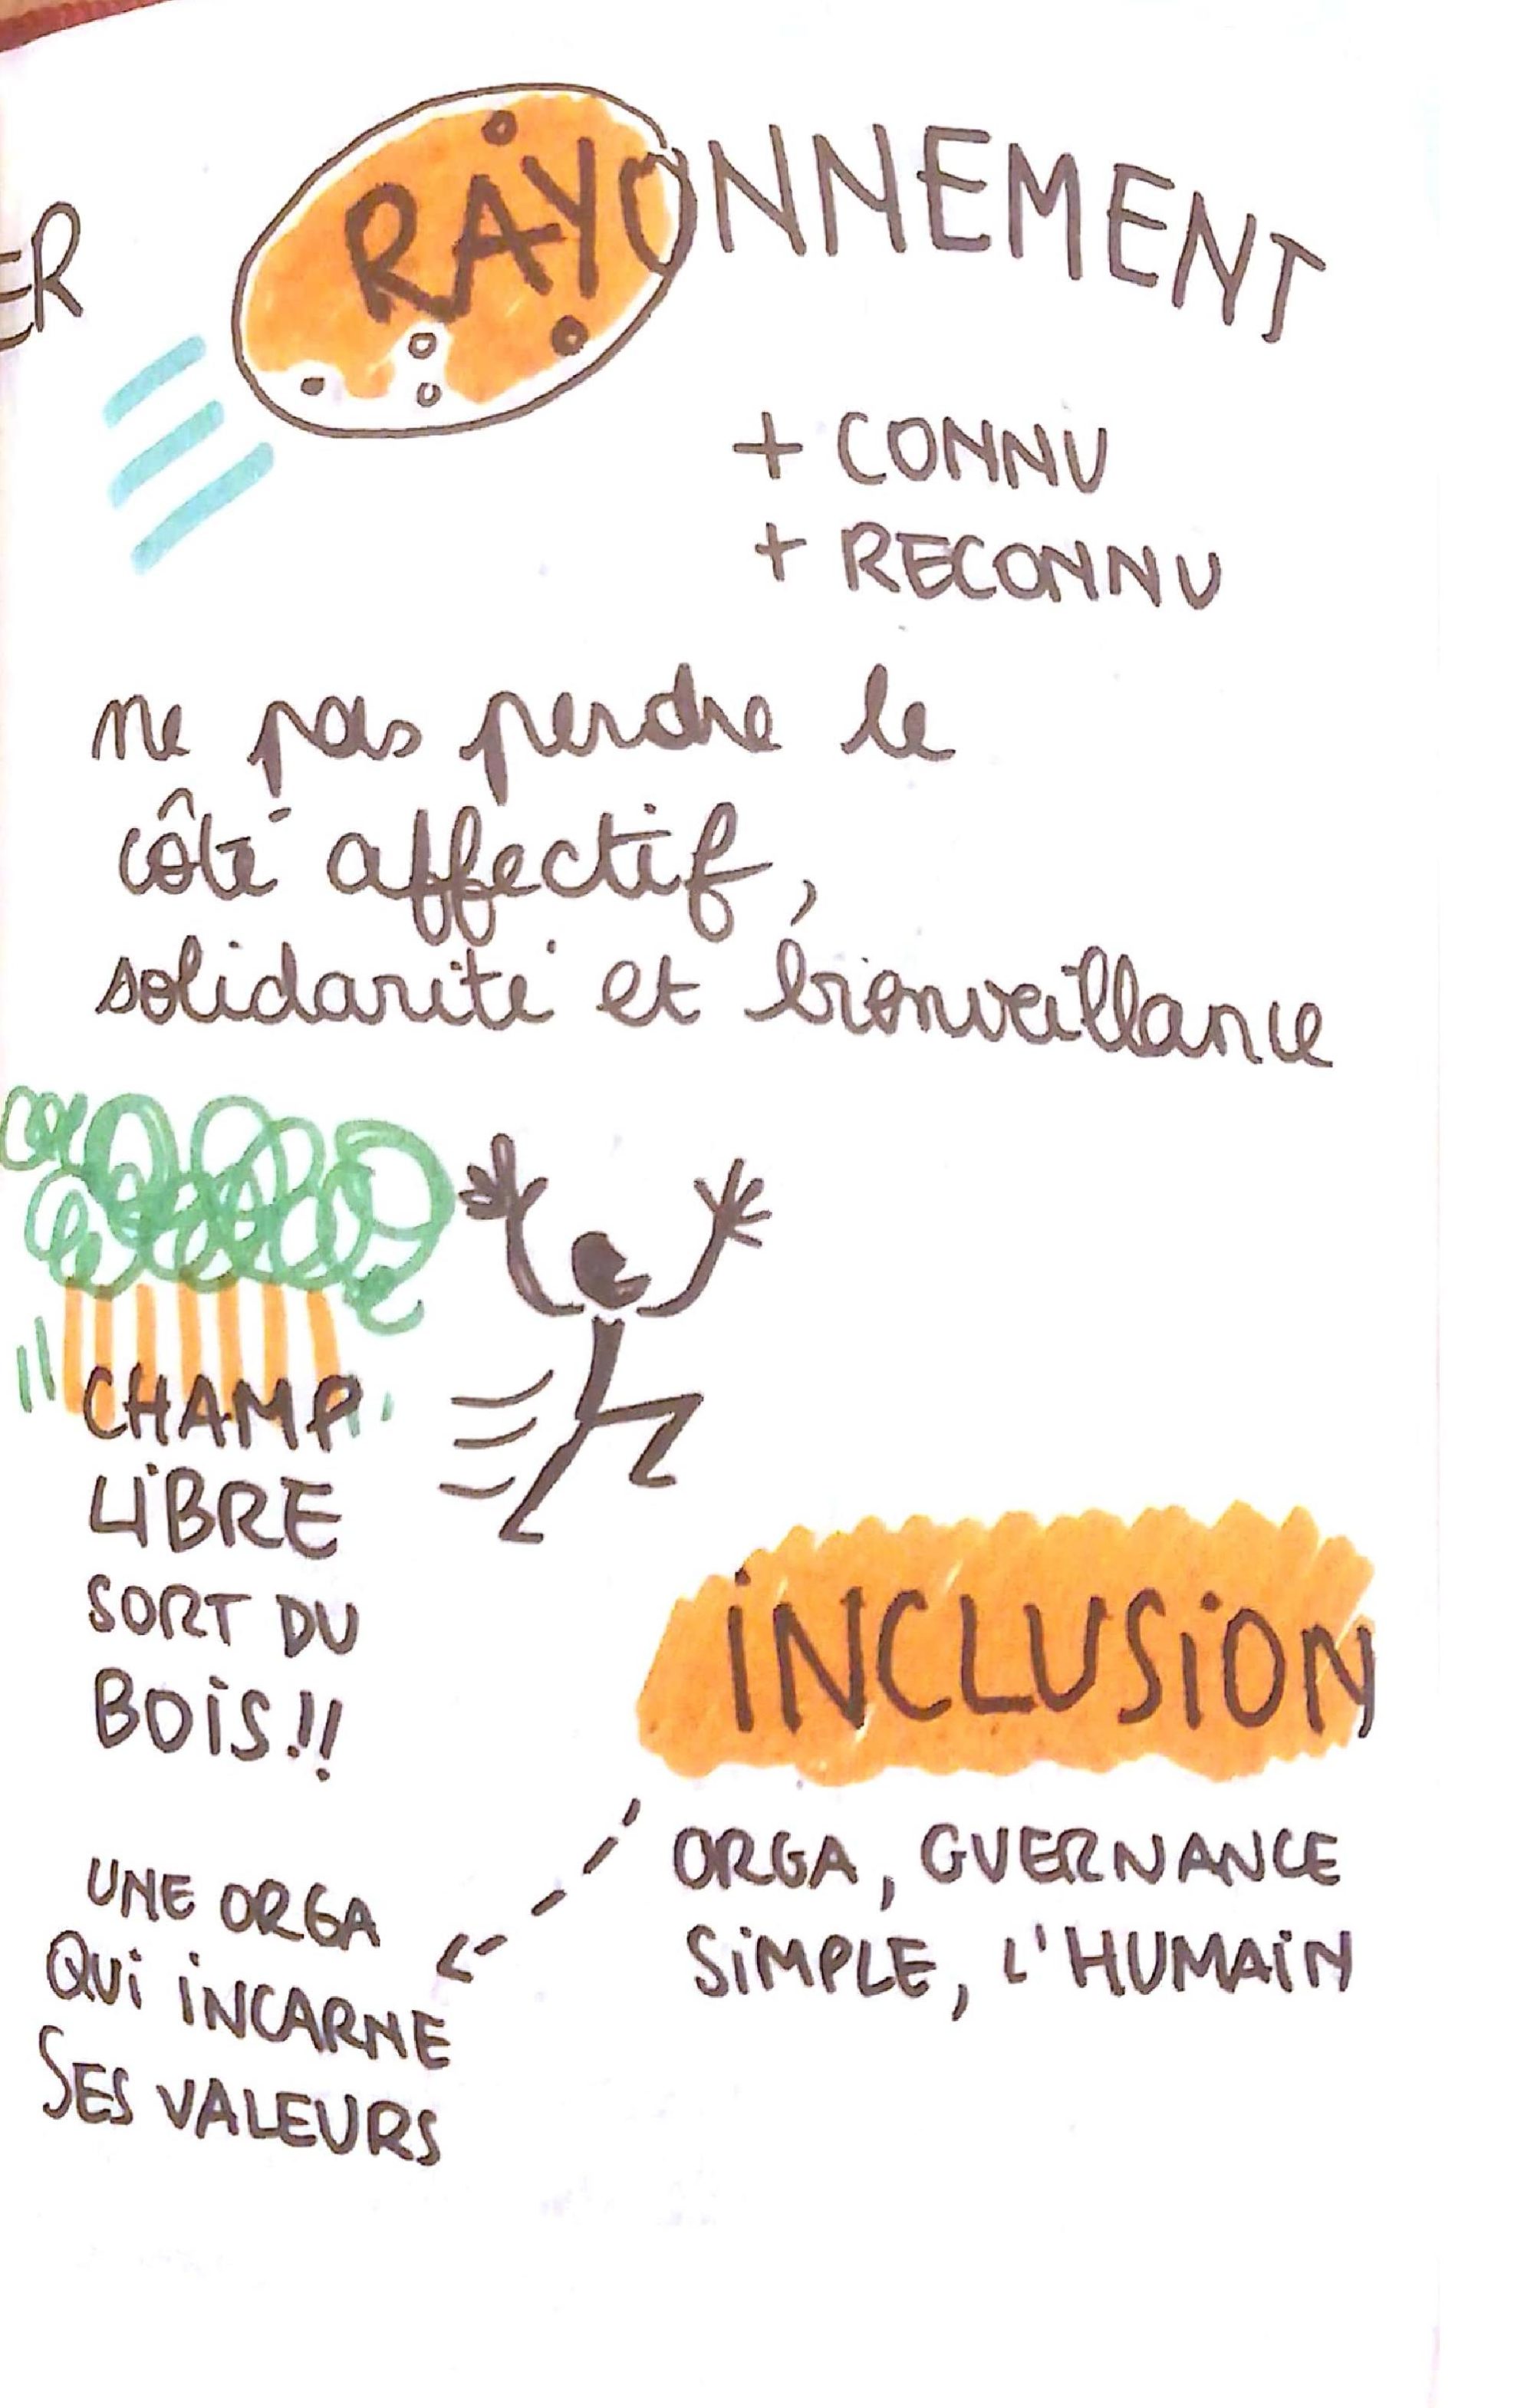 ER
RAYONNEMENT
+ CONNU
+ RECONNU
ne pas perdre le
côté affectif,
solidarité et bienveillance
CHAMP
LIBRE
SORT DU
BOIS!!
INCLUSION
ORGA, GVERNANCE
SIMPLE, L'HUMAIN
UNE ORGA
QUI INCARNE
SES VALEURS